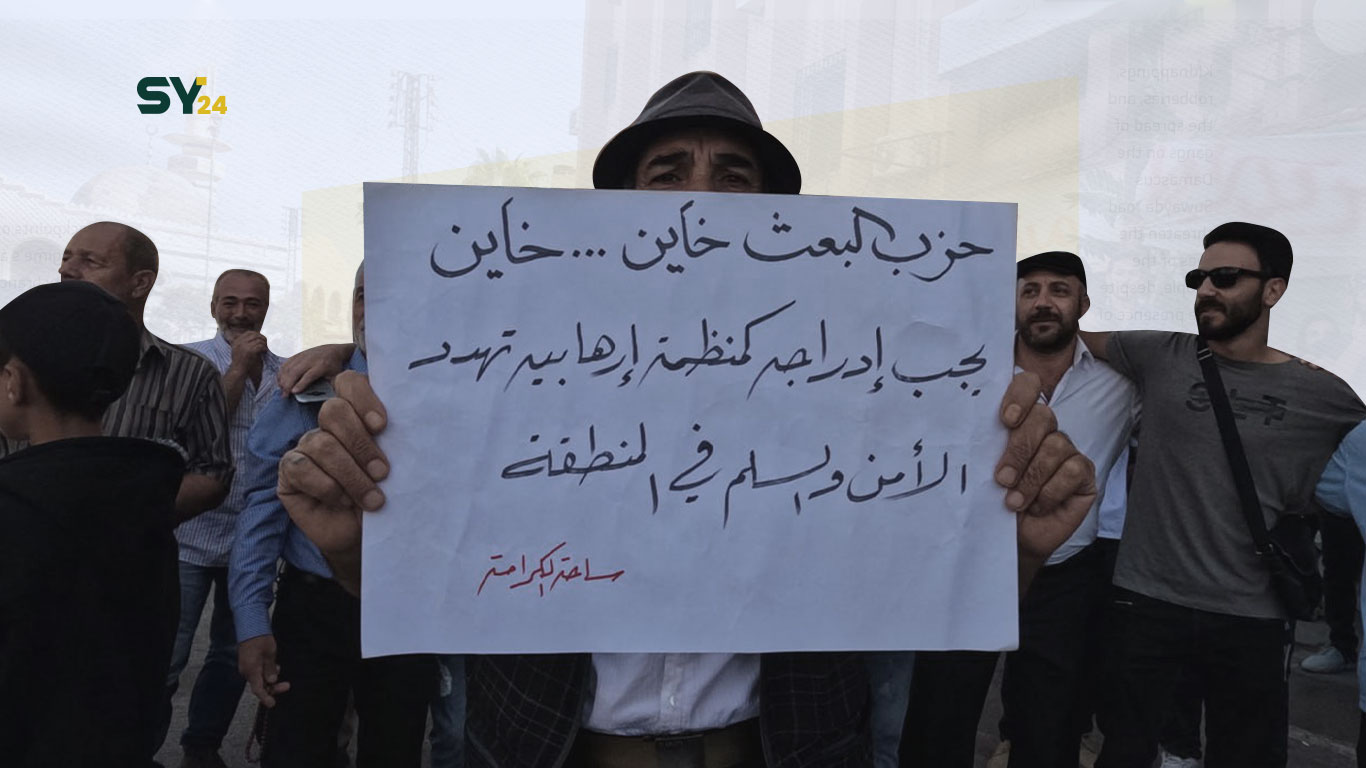 SY24
حزب البعث خاين ... خاين
يجب إدراجه كمنظمة إرهابيه تهدد
الأمن والسلم في المنطقة
ساحة الكرامة
Kidnappings,
robberies, and
the spread of
gangs on the
Damascus
Suwayda road
threaten the
of the
despite
presence of